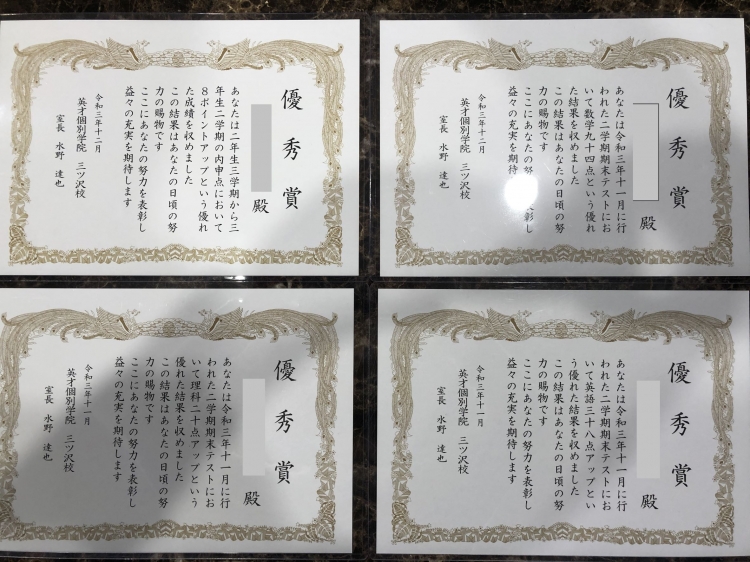 優秀賞
殿
あなたは二年生三学期から三
年生二学期の内申点において
8ポイントアップという優れ
た成績を収めました
この結果はあなたの日頃の努
力の賜物です
ここにあなたの努力を表彰し
益々の充実を期待します
令和三年十二月
英才個別学院 三ツ沢校
室長 水野 達也
優秀賞
殿
あなたは令和三年十一月に行
われた二学期期末テストにお
いて数学九十四点という優れ
た結果を収めました
この結果はあなたの日頃の努
力の賜物です
ここにあなたの努力を表彰し
益々の充実を期待します
令和三年十二月
英才個別学院 三ツ沢校
室長 水野 達也
優秀賞
殿
あなたは令和三年十一月に行
われた二学期期末テストにお
いて理科二十点アップという
優れた結果を収めました
この結果はあなたの日頃の努
力の賜物です
ここにあなたの努力を表彰し
益々の充実を期待します
令和三年十一月
英才個別学院 三ツ沢校
室長 水野 達也
優秀賞
殿
あなたは令和三年十一月に行
われた二学期期末テストにお
いて英語三十八点アップとい
う優れた結果を収めました
この結果はあなたの日頃の努
力の賜物です
ここにあなたの努力を表彰し
益々の充実を期待します
令和三年十一月
英才個別学院 三ツ沢校
室長 水野 達也